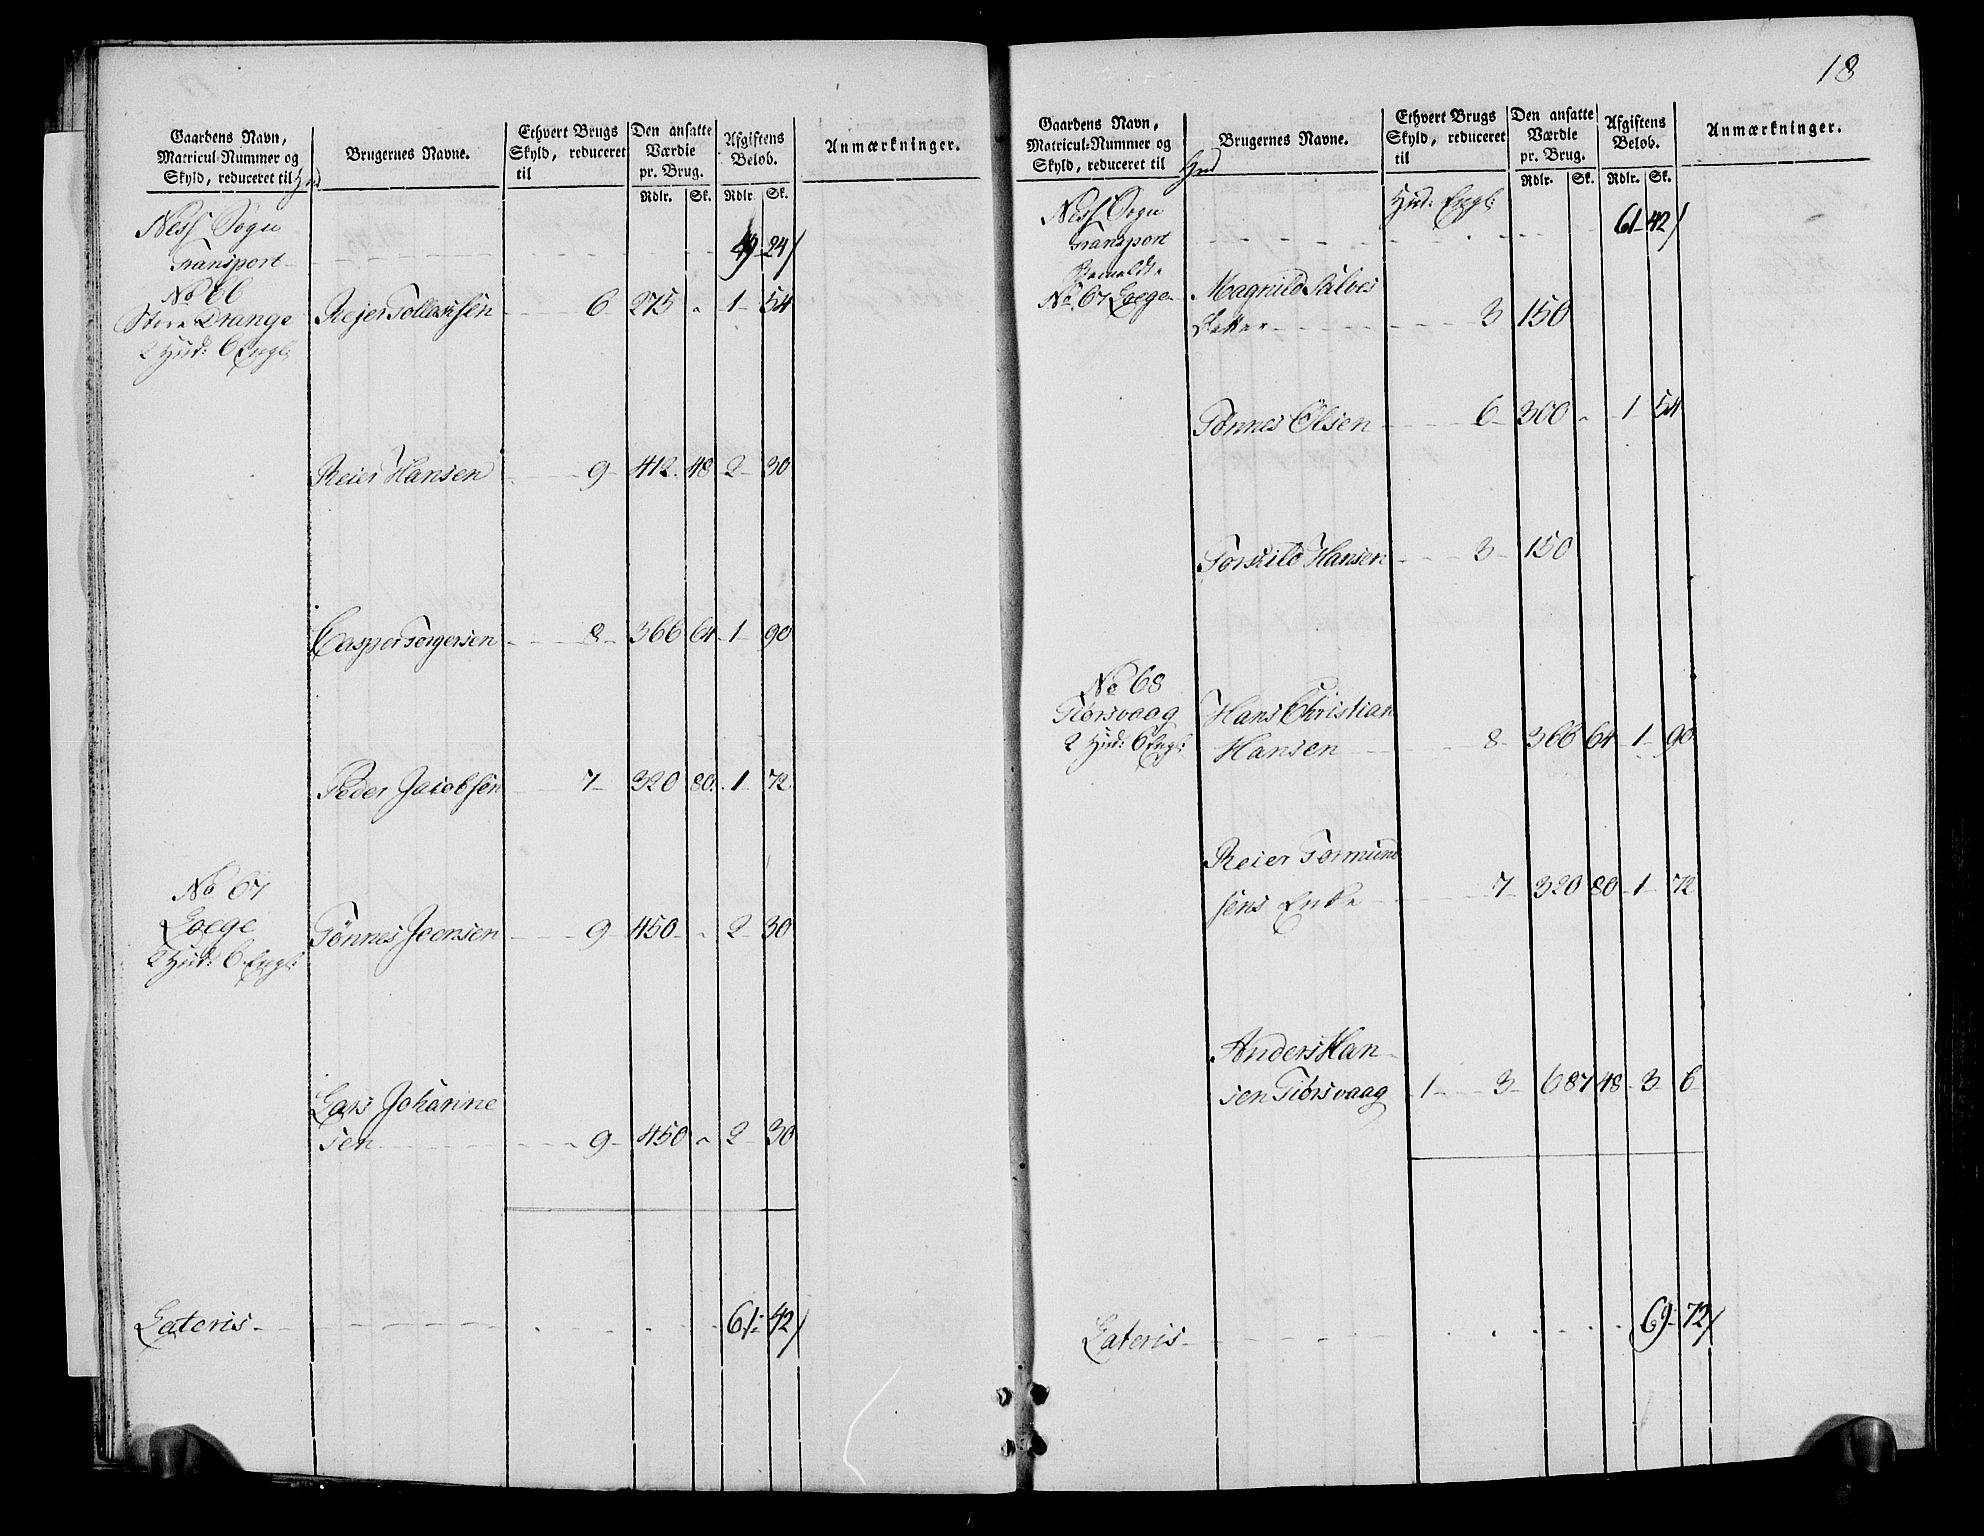 Gaardens Navn, Matricul-Nummer og Skyld, reduceret til Hud
Brugernes Navne.
Ethvert Brugs Skyld, reduceret til
Den ansatte Værdie pr. Brug.
Afgiftens Beløb.
Anmærkninger.
Rdlr. Sk. Rdlr. Sk.
Ness Sogn
Transport 49 24/
No 66
Store Drange Rejer Tollachsen 6 275 " 1 54
2 Hud: 6 Engl:
Reier Hansen 9 412 48 2 30
Casper Torgersen 8 366 64 1 90
Peder Jacobsen 7 320 80 1 72
No 67
Loege Tønnes Joensen 9 450 " 2 30
2 Hud: 6 Engl:
Lars Johanne
sen 9 450 " 2 30
Lateris 61 42/
18
Gaardens Navn, Matricul-Nummer og Skyld, reduceret til Hud
Brugernes Navne.
Ethvert Brugs Skyld, reduceret til
Den ansatte Værdie pr. Brug.
Afgiftens Beløb.
Anmærkninger.
Rdlr. Sk. Rdlr. Sk.
Hud: Engl:
Ness Sogn
Transport 61 42/
No 67 Loege Magnild Salves
Datter 3 150
Tønnes Olsen 6 300 " 1 54
Torkild Hansen 3 150
No 68
Tiørsvaag Hans Christian
2 Hud: 6 Engl: Hansen 8 366 64 1 90
Reier Tormund
sens Enke 7 320 80 1 72
Anders Han
sen Tiørsvaag 1 3 687 48 3 6
Lateris 69 72/